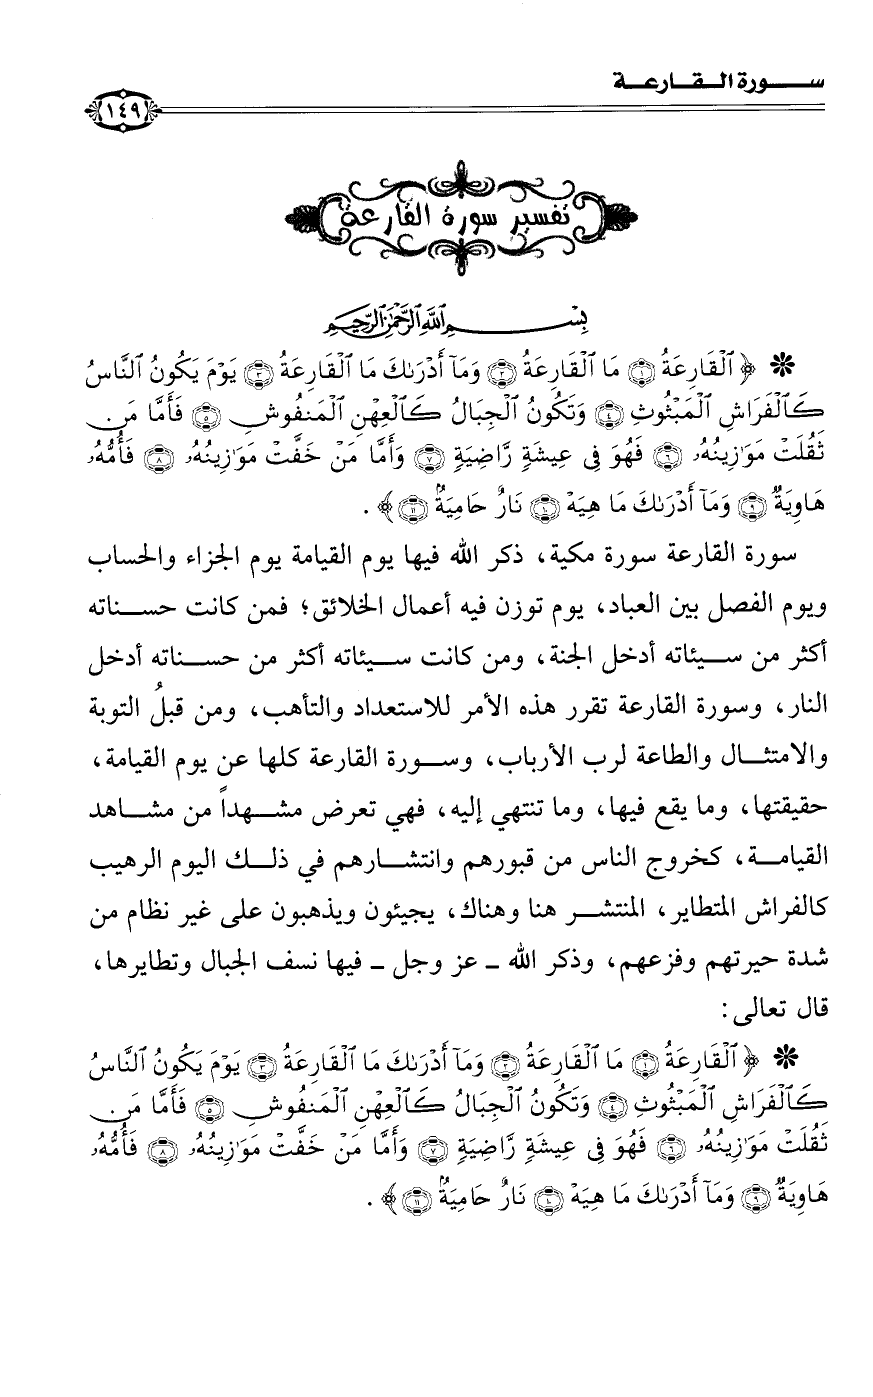 سورة القارعة
١٤٩
تفسير سورة القارعة
بِسْمِ اللَّهِ الرَّحْمَٰنِ الرَّحِيمِ
* ﴿ ٱلْقَارِعَةُ ١ مَا ٱلْقَارِعَةُ ٢ وَمَآ أَدْرَىٰكَ مَا ٱلْقَارِعَةُ ٣ يَوْمَ يَكُونُ ٱلنَّاسُ
كَٱلْفَرَاشِ ٱلْمَبْثُوثِ ٤ وَتَكُونُ ٱلْجِبَالُ كَٱلْعِهْنِ ٱلْمَنفُوشِ ٥ فَأَمَّا مَن
ثَقُلَتْ مَوَٰزِينُهُۥ ٦ فَهُوَ فِى عِيشَةٍ رَّاضِيَةٍ ٧ وَأَمَّا مَنْ خَفَّتْ مَوَٰزِينُهُۥ ٨ فَأُمُّهُۥ
هَاوِيَةٌ ٩ وَمَآ أَدْرَىٰكَ مَا هِيَهْ ١٠ نَارٌ حَامِيَةٌۢ ١١ ﴾ .
سورة القارعة سورة مكية، ذكر الله فيها يوم القيامة يوم الجزاء والحساب
ويوم الفصل بين العباد، يوم توزن فيه أعمال الخلائق؛ فمن كانت حسناته
أكثر من سيئاته أدخل الجنة، ومن كانت سيئاته أكثر من حسناته أدخل
النار، وسورة القارعة تقرر هذه الأمر للاستعداد والتأهب، ومن قبلُ التوبة
والامتثال والطاعة لرب الأرباب، وسورة القارعة كلها عن يوم القيامة،
حقيقتها، وما يقع فيها، وما تنتهي إليه، فهي تعرض مشهداً من مشاهد
القيامة، كخروج الناس من قبورهم وانتشارهم في ذلك اليوم الرهيب
كالفراش المتطاير، المنتشر هنا وهناك، يجيئون ويذهبون على غير نظام من
شدة حيرتهم وفزعهم، وذكر الله - عز وجل - فيها نسف الجبال وتطايرها،
قال تعالى:
* ﴿ ٱلْقَارِعَةُ ١ مَا ٱلْقَارِعَةُ ٢ وَمَآ أَدْرَىٰكَ مَا ٱلْقَارِعَةُ ٣ يَوْمَ يَكُونُ ٱلنَّاسُ
كَٱلْفَرَاشِ ٱلْمَبْثُوثِ ٤ وَتَكُونُ ٱلْجِبَالُ كَٱلْعِهْنِ ٱلْمَنفُوشِ ٥ فَأَمَّا مَن
ثَقُلَتْ مَوَٰزِينُهُۥ ٦ فَهُوَ فِى عِيشَةٍ رَّاضِيَةٍ ٧ وَأَمَّا مَنْ خَفَّتْ مَوَٰزِينُهُۥ ٨ فَأُمُّهُۥ
هَاوِيَةٌ ٩ وَمَآ أَدْرَىٰكَ مَا هِيَهْ ١٠ نَارٌ حَامِيَةٌۢ ١١ ﴾ .